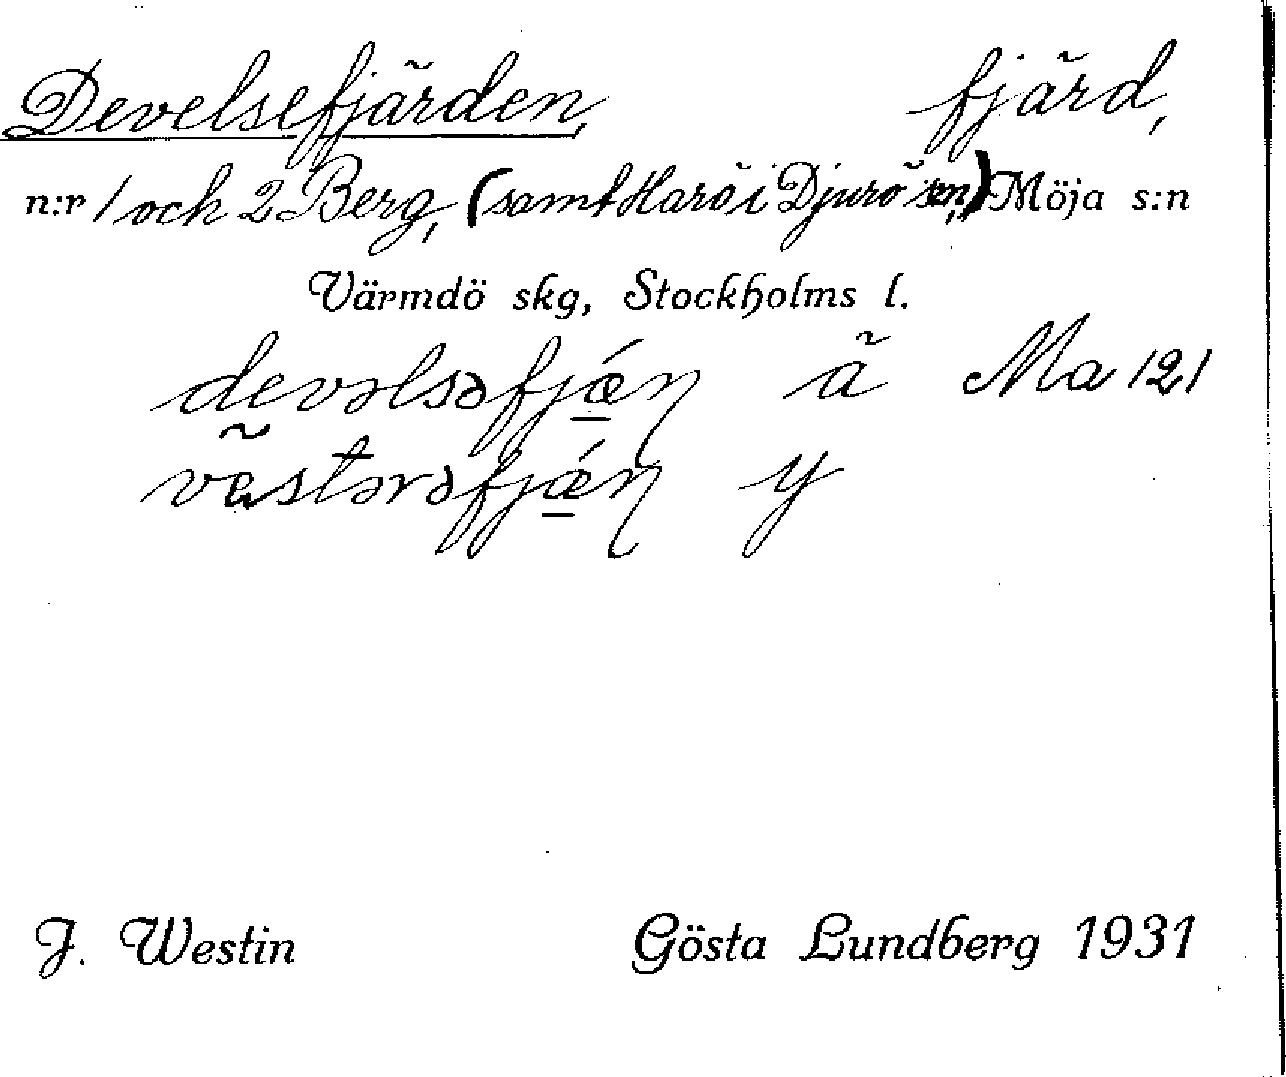 Develsefjärden, fjärd,
n:r 1 och 2 Berg, (samt Harö i Djurö sn,) Möja s:n
Värmdö skg, Stockholms l.
devəlsəfjǽɳ ä Ma 121
västərəfjǽɳ y
J. Westin Gösta Lundberg 1931